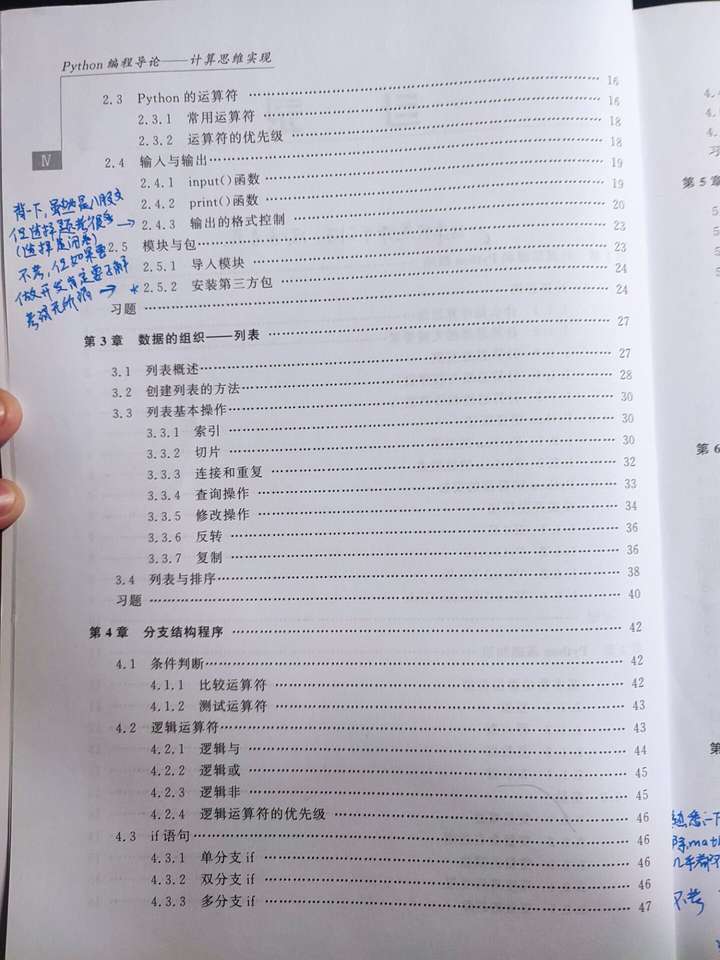 Python 编程导论——计算思维实现
Ⅳ
2.3 Python 的运算符 16
2.3.1 常用运算符 16
2.3.2 运算符的优先级 18
2.4 输入与输出 18
2.4.1 input()函数 19
2.4.2 print()函数 19
2.4.3 输出的格式控制 20
2.5 模块与包 23
2.5.1 导入模块 23
*2.5.2 安装第三方包 24
习题 24
背一下，
但选择题考很多
不考，但如果要
做开发肯定要了解
考试无所谓
第 3 章 数据的组织——列表 27
3.1 列表概述 27
3.2 创建列表的方法 28
3.3 列表基本操作 30
3.3.1 索引 30
3.3.2 切片 30
3.3.3 连接和重复 32
3.3.4 查询操作 33
3.3.5 修改操作 34
3.3.6 反转 36
3.3.7 复制 36
3.4 列表与排序 38
习题 40
第 4 章 分支结构程序 42
4.1 条件判断 42
4.1.1 比较运算符 42
4.1.2 测试运算符 43
4.2 逻辑运算符 43
4.2.1 逻辑与 44
4.2.2 逻辑或 45
4.2.3 逻辑非 45
4.2.4 逻辑运算符的优先级 46
4.3 if 语句 46
4.3.1 单分支 if 46
4.3.2 双分支 if 46
4.3.3 多分支 if 47
4.4
4.
4.
习
第 5 章
5
5
第 6
第
熟悉一下
不考